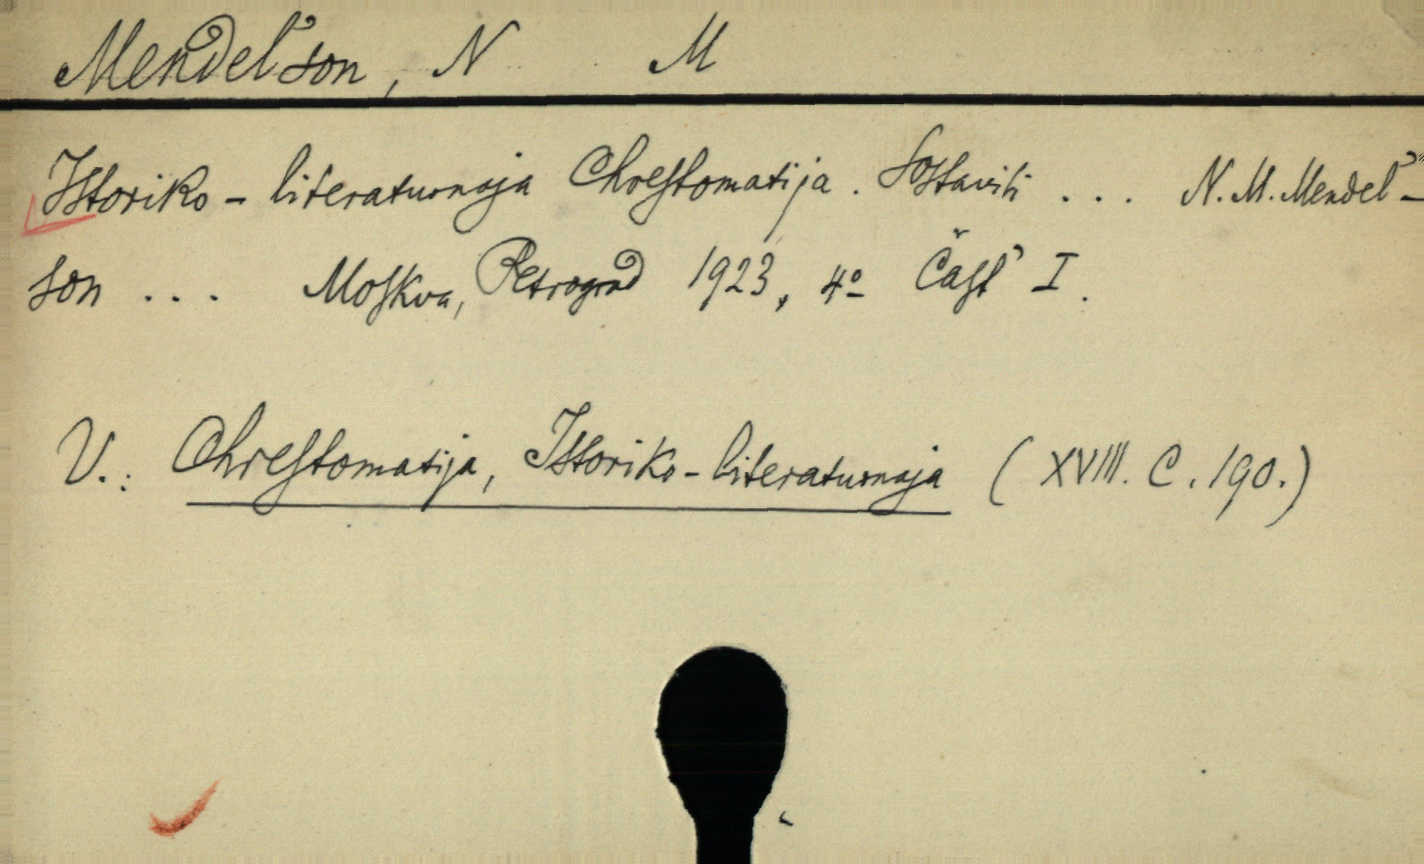 Mendel'son, N M
Istoriko-literaturnaja Chrestomatija. Sostavili ... N. M. Mendel'-
son ... Moskva, Petrograd 1923, 4º Čast' I.
V.: Chrestomatija, Istoriko-literaturnaja (XVIII. C. 190.)